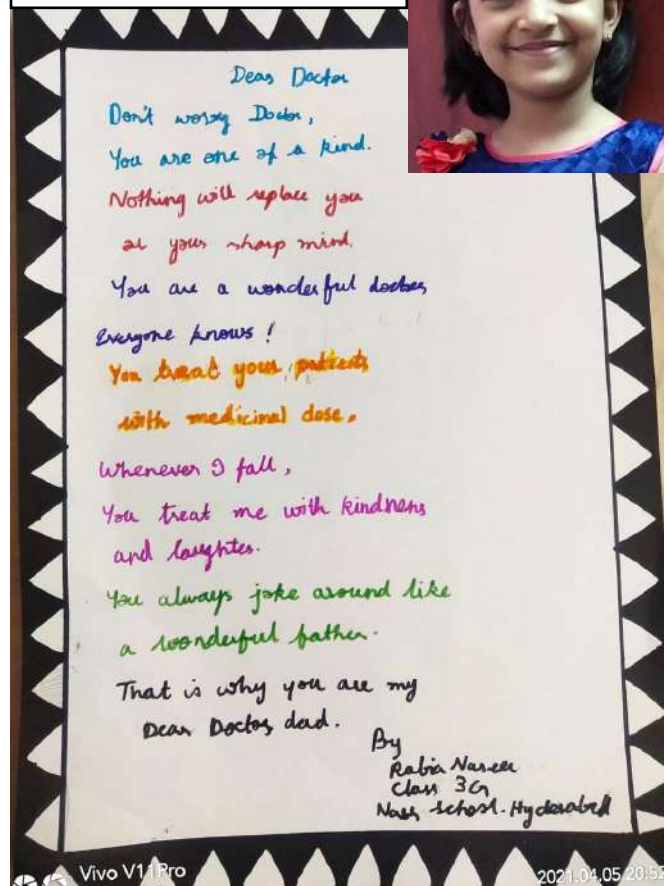 Dear Doctor
Don't worry Doctor,
You are one of a kind.
Nothing will replace you
or your sharp mind.
You are a wonderful doctor,
Everyone knows!
You treat your patients
with medicinal dose.
Whenever I fall,
You treat me with kindness
and laughter.
You always joke around like
a wonderful father.
That is why you are my
Dear Doctor dad.
By
Rabia Naseer
Class 3G
Nasr School. Hyderabad
Vivo V11Pro
2021.04.05 20:52